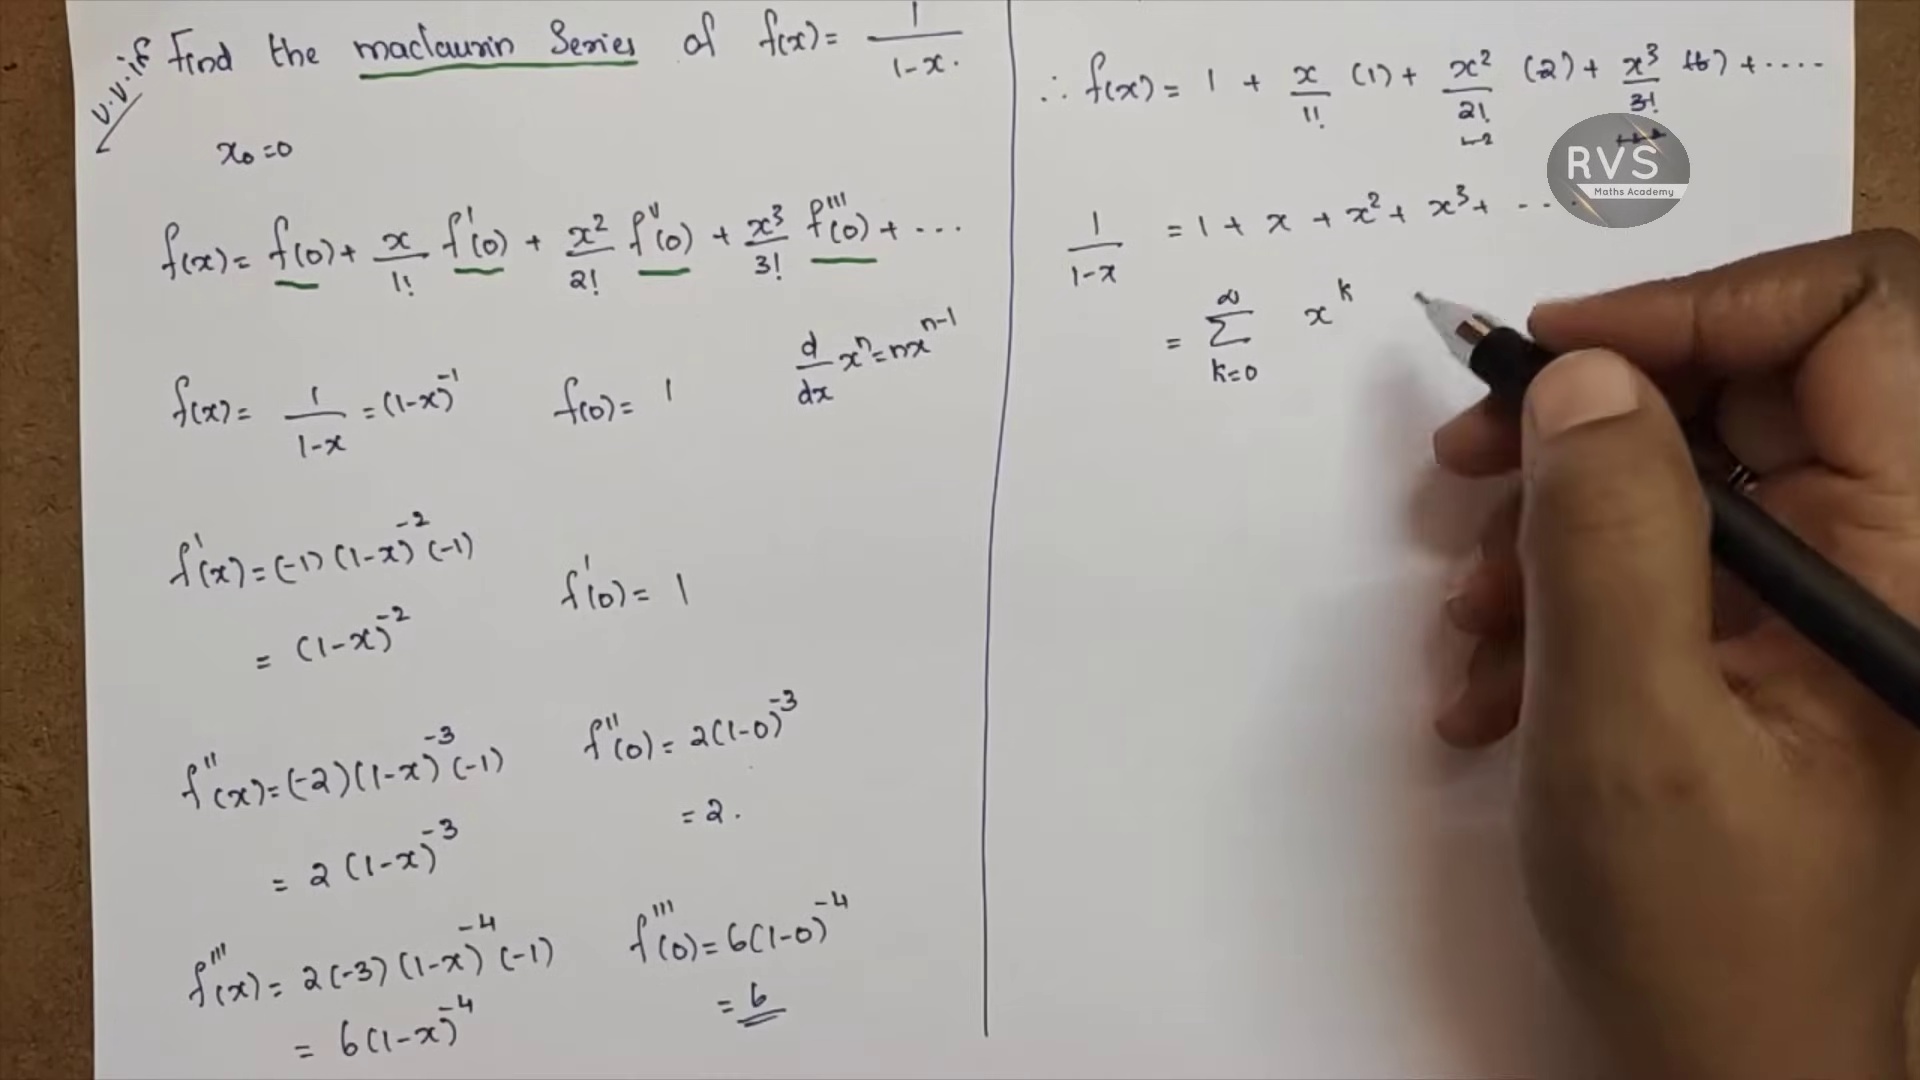 v.v.if Find the maclaurin Series of f(x)= 1/1-x.
x₀=0
f(x)= f(0)+ x/1! f'(0) + x²/2! f''(0) + x³/3! f'''(0) + ...
d/dx xⁿ=nxⁿ⁻¹
f(x)= 1/1-x = (1-x)⁻¹ f(0)= 1
f'(x)=(-1)(1-x)⁻²(-1) f'(0)= 1
= (1-x)⁻²
f''(x)=(-2)(1-x)⁻³(-1) f''(0)= 2(1-0)⁻³
= 2(1-x)⁻³ = 2.
f'''(x)= 2(-3)(1-x)⁻⁴(-1) f'''(0)= 6(1-0)⁻⁴
= 6(1-x)⁻⁴ = 6
∴ f(x)= 1 + x/1! (1)+ x²/2! (2)+ x³/3! (6)+....
1/1-x = 1+ x + x²+ x³+ ....
= ∞∑k=0 xᵏ
RVS
Maths Academy